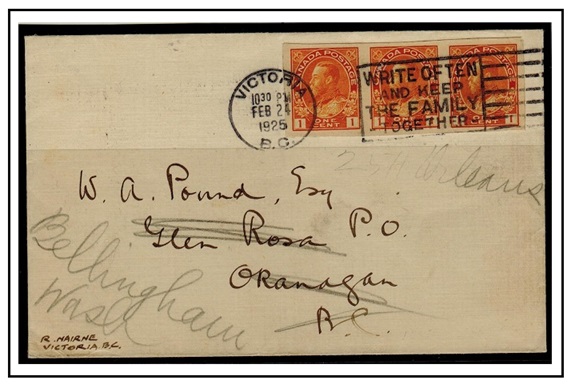 CANADA POSTAGE CANADA POSTAGE CANADA POSTAGE
1 ONE CENT 1 1 CENT 1 1 CENT 1
VICTORIA
10 30 PM
FEB 24
1925
B.C.
WRITE OFTEN
AND KEEP
THE FAMILY
TOGETHER
Orleans
W. A. Pound, Esq
Glen Rosa P.O.
Okanagan
B.C.
Bellingham
Wash
R. NAIRNE
VICTORIA. B.C.